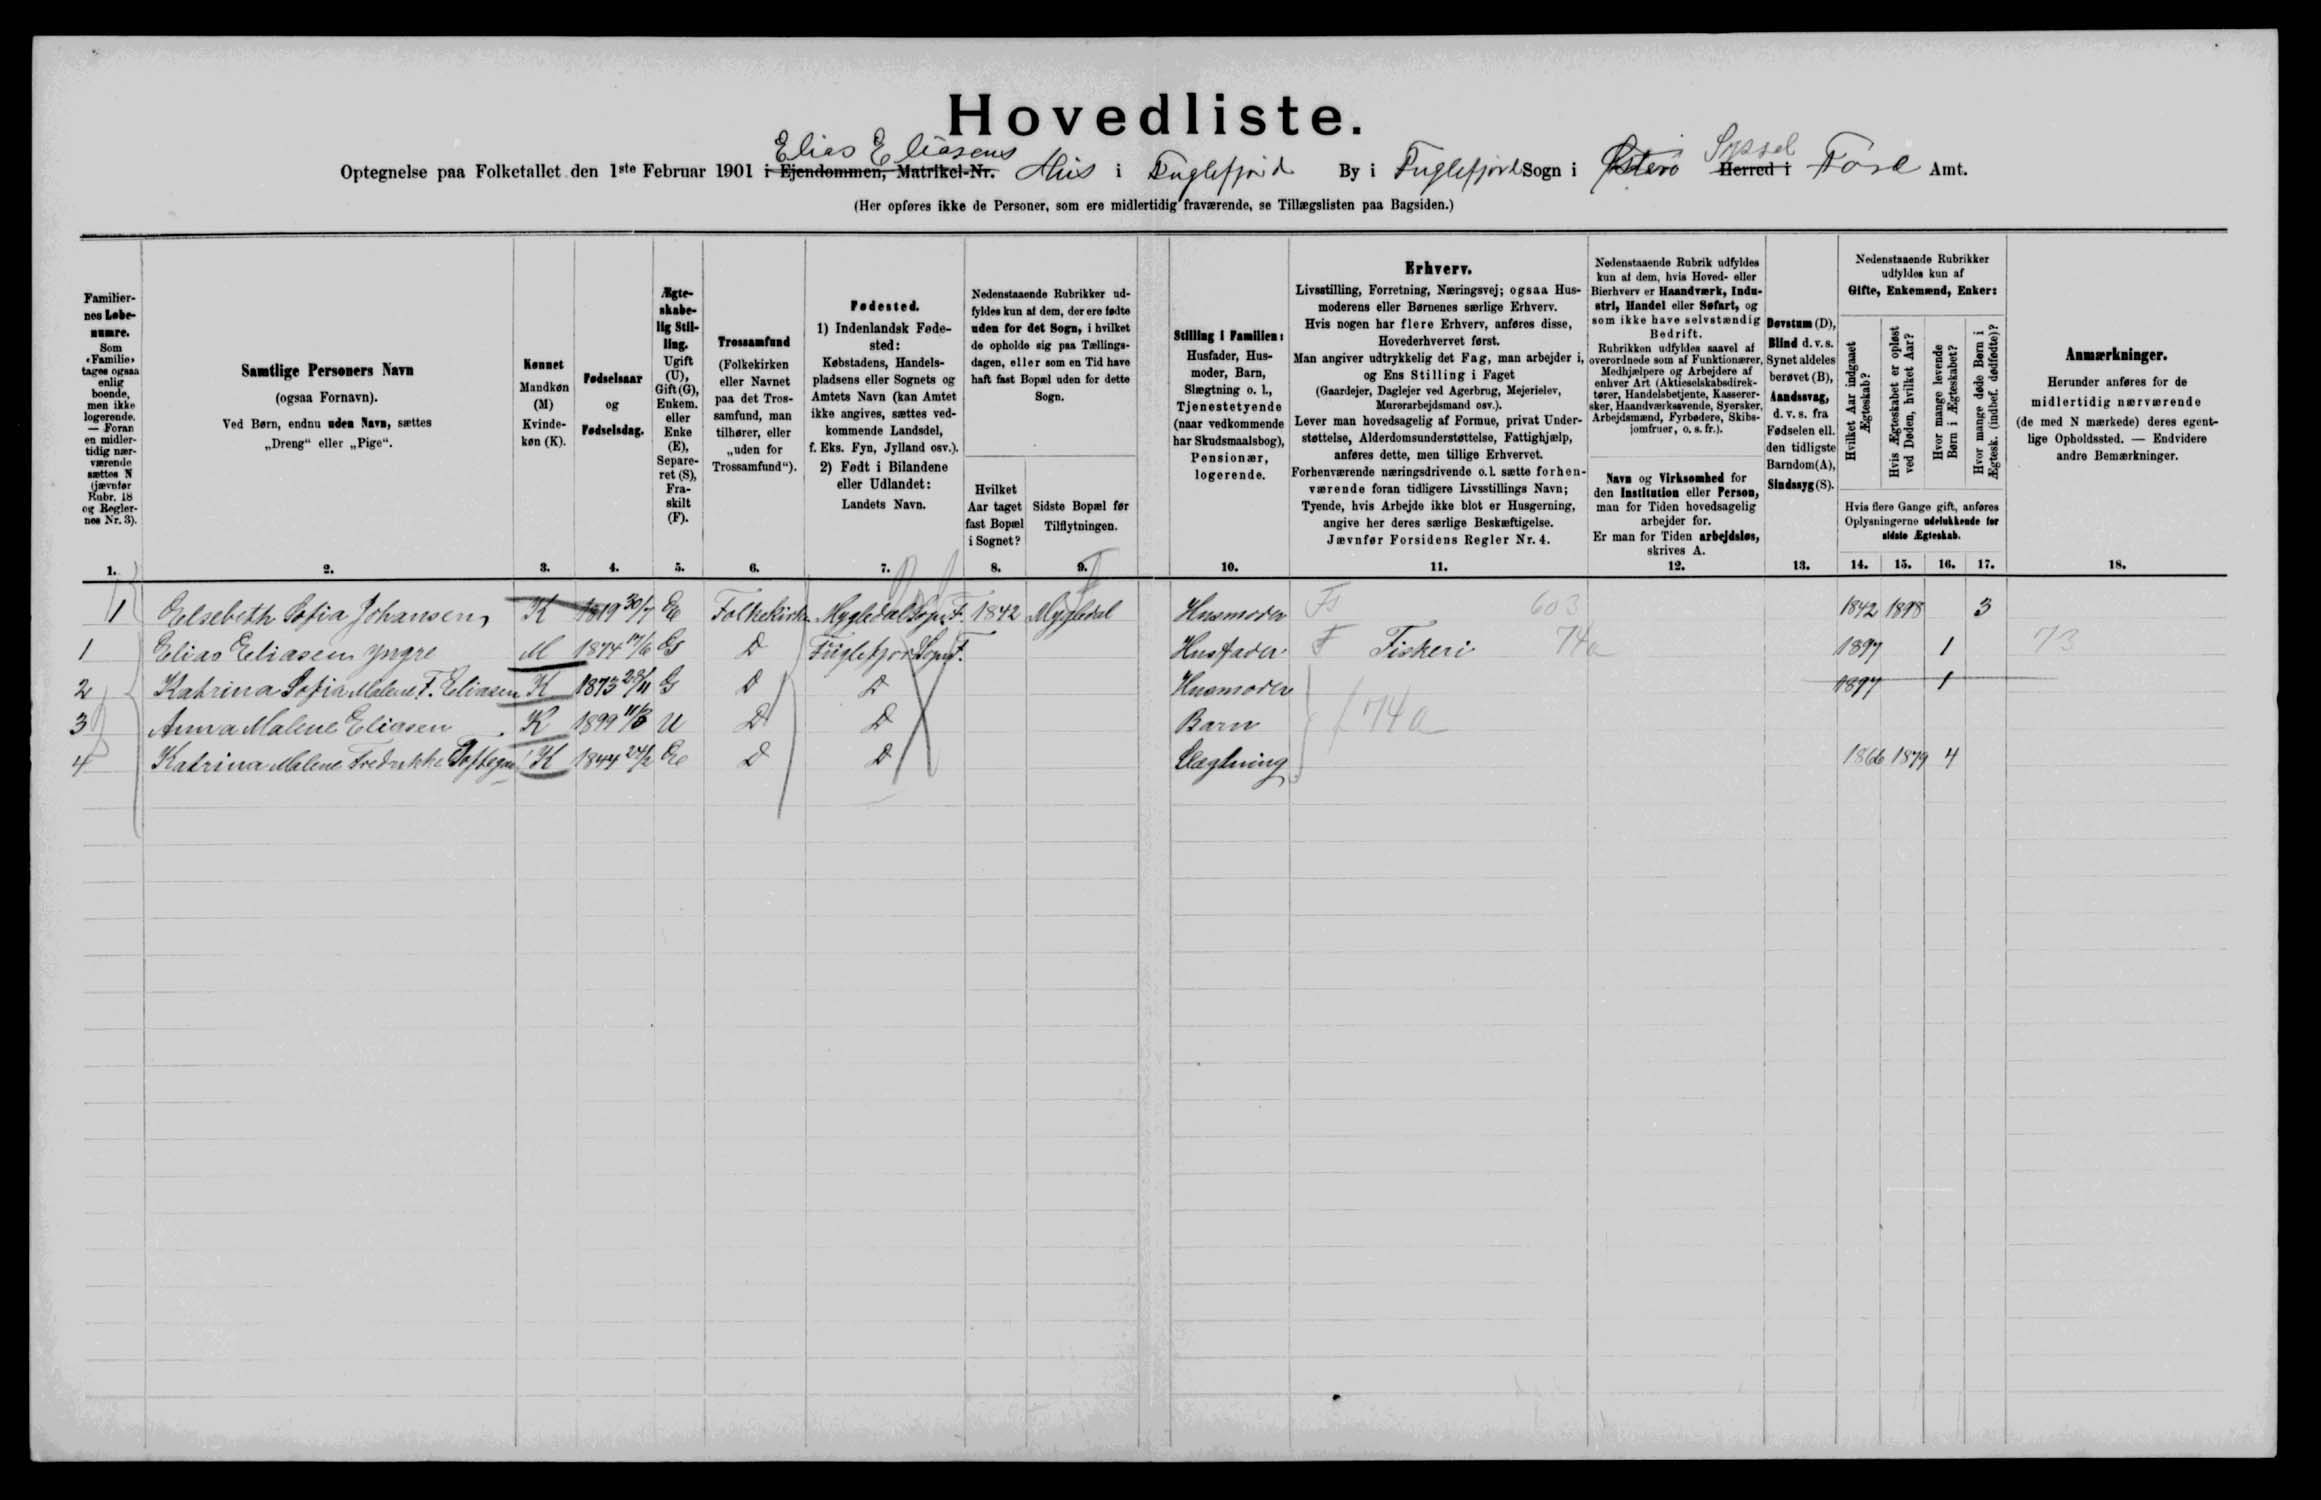 Hovedliste.
Optegnelse paa Folketallet den 1ste Februar 1901 i Ejendommen, Matrikel-Nr. Elias Eliasens Hus i Fuglefjord By i Fuglefjord Sogn i Østerø Herred i Syssel Færø Amt.
(Her opføres ikke de Personer, som ere midlertidig fraværende, se Tillægslisten paa Bagsiden.)
Familiernes Løbenumre.
Som «Familie» tages ogsaa enlig boende, men ikke logerende. — Foran en midlertidig nærværende sættes N (jævnfør Rubr. 18 og Reglernes Nr. 3).
1.
Samtlige Personers Navn
(ogsaa Fornavn).
Ved Børn, endnu uden Navn, sættes
„Dreng“ eller „Pige“.
2.
Kønnet
Mandkøn (M)
Kvindekøn (K).
3.
Fødselsaar
og
Fødselsdag.
4.
Ægteskabelig Stilling.
Ugift (U), Gift (G), Enkem. eller Enke (E), Separeret (S), Fraskilt (F).
5.
Trossamfund
(Folkekirken eller Navnet paa det Trossamfund, man tilhører, eller „uden for Trossamfund“).
6.
Fødested.
1) Indenlandsk Fødested:
Købstadens, Handelspladsens eller Sognets og Amtets Navn (kan Amtet ikke angives, sættes vedkommende Landsdel, f. Eks. Fyn, Jylland osv.).
2) Født i Bilandene eller Udlandet:
Landets Navn.
7.
Nedenstaaende Rubrikker udfyldes kun af dem, der ere fødte uden for det Sogn, i hvilket de opholde sig paa Tællingsdagen, eller som en Tid have haft fast Bopæl uden for dette Sogn.
Hvilket Aar taget fast Bopæl i Sognet?
8.
Sidste Bopæl før Tilflytningen.
9.
Stilling i Familien:
Husfader, Husmoder, Barn, Slægtning o. l., Tjenestetyende (naar vedkommende har Skudsmaalsbog), Pensionær, logerende.
10.
Erhverv.
Livsstilling, Forretning, Næringsvej; ogsaa Husmoderens eller Børnenes særlige Erhverv.
Hvis nogen har flere Erhverv, anføres disse, Hovederhvervet først.
Man angiver udtrykkelig det Fag, man arbejder i, og Ens Stilling i Faget
(Gaardejer, Daglejer ved Agerbrug, Mejerielev, Murerarbejdsmand osv.).
Lever man hovedsagelig af Formue, privat Understøttelse, Alderdomsunderstøttelse, Fattighjælp, anføres dette, men tillige Erhvervet.
Forhenværende næringsdrivende o. l. sætte forhenværende foran tidligere Livsstillings Navn; Tyende, hvis Arbejde ikke blot er Husgerning, angive her deres særlige Beskæftigelse.
Jævnfør Forsidens Regler Nr. 4.
11.
Nedenstaaende Rubrik udfyldes kun af dem, hvis Hoved- eller Bierhverv er Haandværk, Industri, Handel eller Søfart, og som ikke have selvstændig Bedrift.
Rubrikken udfyldes saavel af overordnede som af Funktionærer, Medhjælpere og Arbejdere af enhver Art (Aktieselskabsdirektører, Handelsbetjente, Kasserersker, Haandværkssvende, Syersker, Arbejdsmænd, Fyrbødere, Skibsjomfruer, o. s. fr.).
Navn og Virksomhed for den Institution eller Person, man for Tiden hovedsagelig arbejder for.
Er man for Tiden arbejdsløs, skrives A.
12.
Døvstum (D), Blind d. v. s. Synet aldeles berøvet (B), Aandssvag, d. v. s. fra Fødselen ell. den tidligste Barndom (A), Sindssyg (S).
13.
Nedenstaaende Rubrikker udfyldes kun af
Gifte, Enkemænd, Enker:
Hvilket Aar indgaaet Ægteskab?
Hvis Ægteskabet er opløst ved Døden, hvilket Aar?
Hvor mange levende Børn i Ægteskabet?
Hvor mange døde Børn i Ægtesk. (indbef. dødfødte)?
Hvis flere Gange gift, anføres Oplysningerne udelukkende for sidste Ægteskab.
14. 15. 16. 17.
Anmærkninger.
Herunder anføres for de midlertidig nærværende (de med N mærkede) deres egentlige Opholdssted. — Endvidere andre Bemærkninger.
18.
1 Elsebeth Sofia Johansen, K 1819 30/7 E Folkekirken Mygledal Sogn, F. 1842 Mygledal Husmoder Fs 603 1842 1898 3
1 Elias Eliasen yngre M 1874 17/6 G D Fuglefjord Sogn F. Husfader F Fiskeri 74a 1897 1 73
2 Katrina Sofia Malene F. Eliasen K 1873 28/11 G D D Husmoder 1897 1
3 Anna Malene Eliasen K 1899 U D D Barn f 74a
4 Katrina Malene Fredrikke K 1844 24/2 E D D Slægtning 1866 1879 4